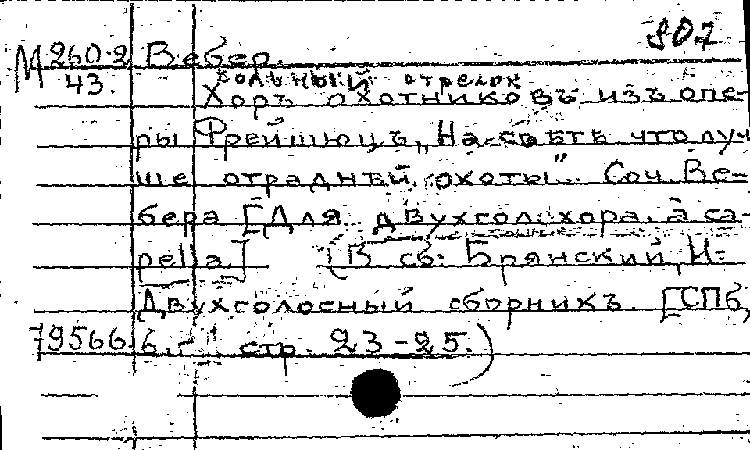 807
М 260.2 Вебер.
43. вольный стрелок
Хоръ охотниковъ изъ опе-
ры Фрейшюцъ „На свѣтѣ что луч-
ше отрадный охоты". Соч. Ве-
бера [Для двухгол. хора. a ca-
pella] (В сб: Брянский, Н:
Двухголосный сборникъ. [СПб,
79566 б. г.] стр. 23-25.)